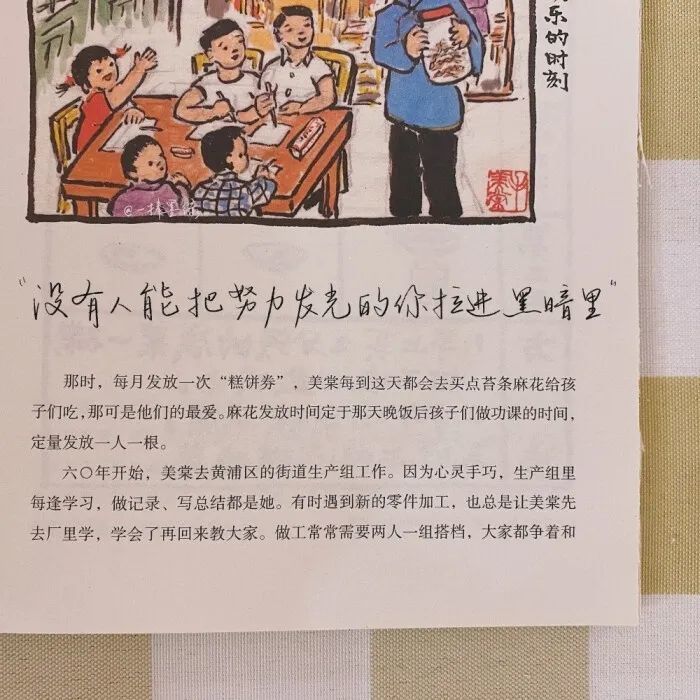 乐的时刻
@一捧墨绿
“没有人能把努力发光的你拉进黑暗里”
那时，每月发放一次“糕饼券”，美棠每到这天都会去买点苔条麻花给孩
子们吃，那可是他们的最爱。麻花发放时间定于那天晚饭后孩子们做功课的时间，
定量发放一人一根。
六〇年开始，美棠去黄浦区的街道生产组工作。因为心灵手巧，生产组里
每逢学习，做记录、写总结都是她。有时遇到新的零件加工，也总是让美棠先
去厂里学，学会了再回来教大家。做工常常需要两人一组搭档，大家都争着和